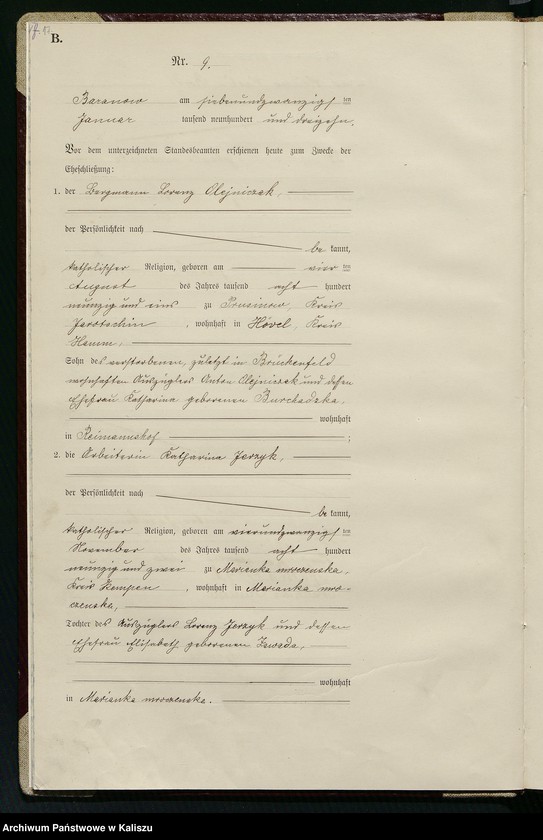 B.
Nr. 9.
Baranow am siebenundzwanzigs ten
Januar tausend neunhundert und dreizehn.
Vor dem unterzeichneten Standesbeamten erschienen heute zum Zwecke der
Eheschließung:
1. der Bergmann Lorenz Olejniczak,
der Persönlichkeit nach
be kannt,
katholischer Religion, geboren am vier ten
August des Jahres tausend acht hundert
neunzig und eins zu Prusinow, Kreis
Jarotschin, wohnhaft in Hövel, Kreis
Hamm,
Sohn des verstorbenen, zuletzt in Brückenfeld
wohnhaften Auszüglers Anton Olejniczak und dessen
Ehefrau Katharina geborenen
wohnhaft
in Reimannshof ;
2. die Arbeiterin Katharina Jerzyk,
der Persönlichkeit nach
be kannt,
katholischer Religion, geboren am vierundzwanzigs ten
November des Jahres tausend acht hundert
neunzig und zwei zu Marianka mroczenska,
Kreis Kempen, wohnhaft in Marianka mro-
czenska,
Tochter des Auszüglers Lorenz Jerzyk und dessen
Ehefrau Elisabeth geborenen Zawada,
wohnhaft
in Marianka mroczenska.
Archiwum Państwowe w Kaliszu